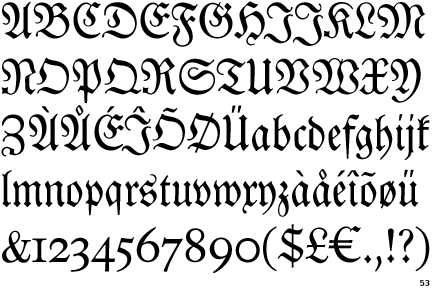 ABCDEFGHIJKLM
NOPQRSTUVWXY
ZÀÅÉÎÕØÜabcdefghijk
lmnopqrstuvwxyzàåéîõøü
&1234567890($£€.,!?)
53